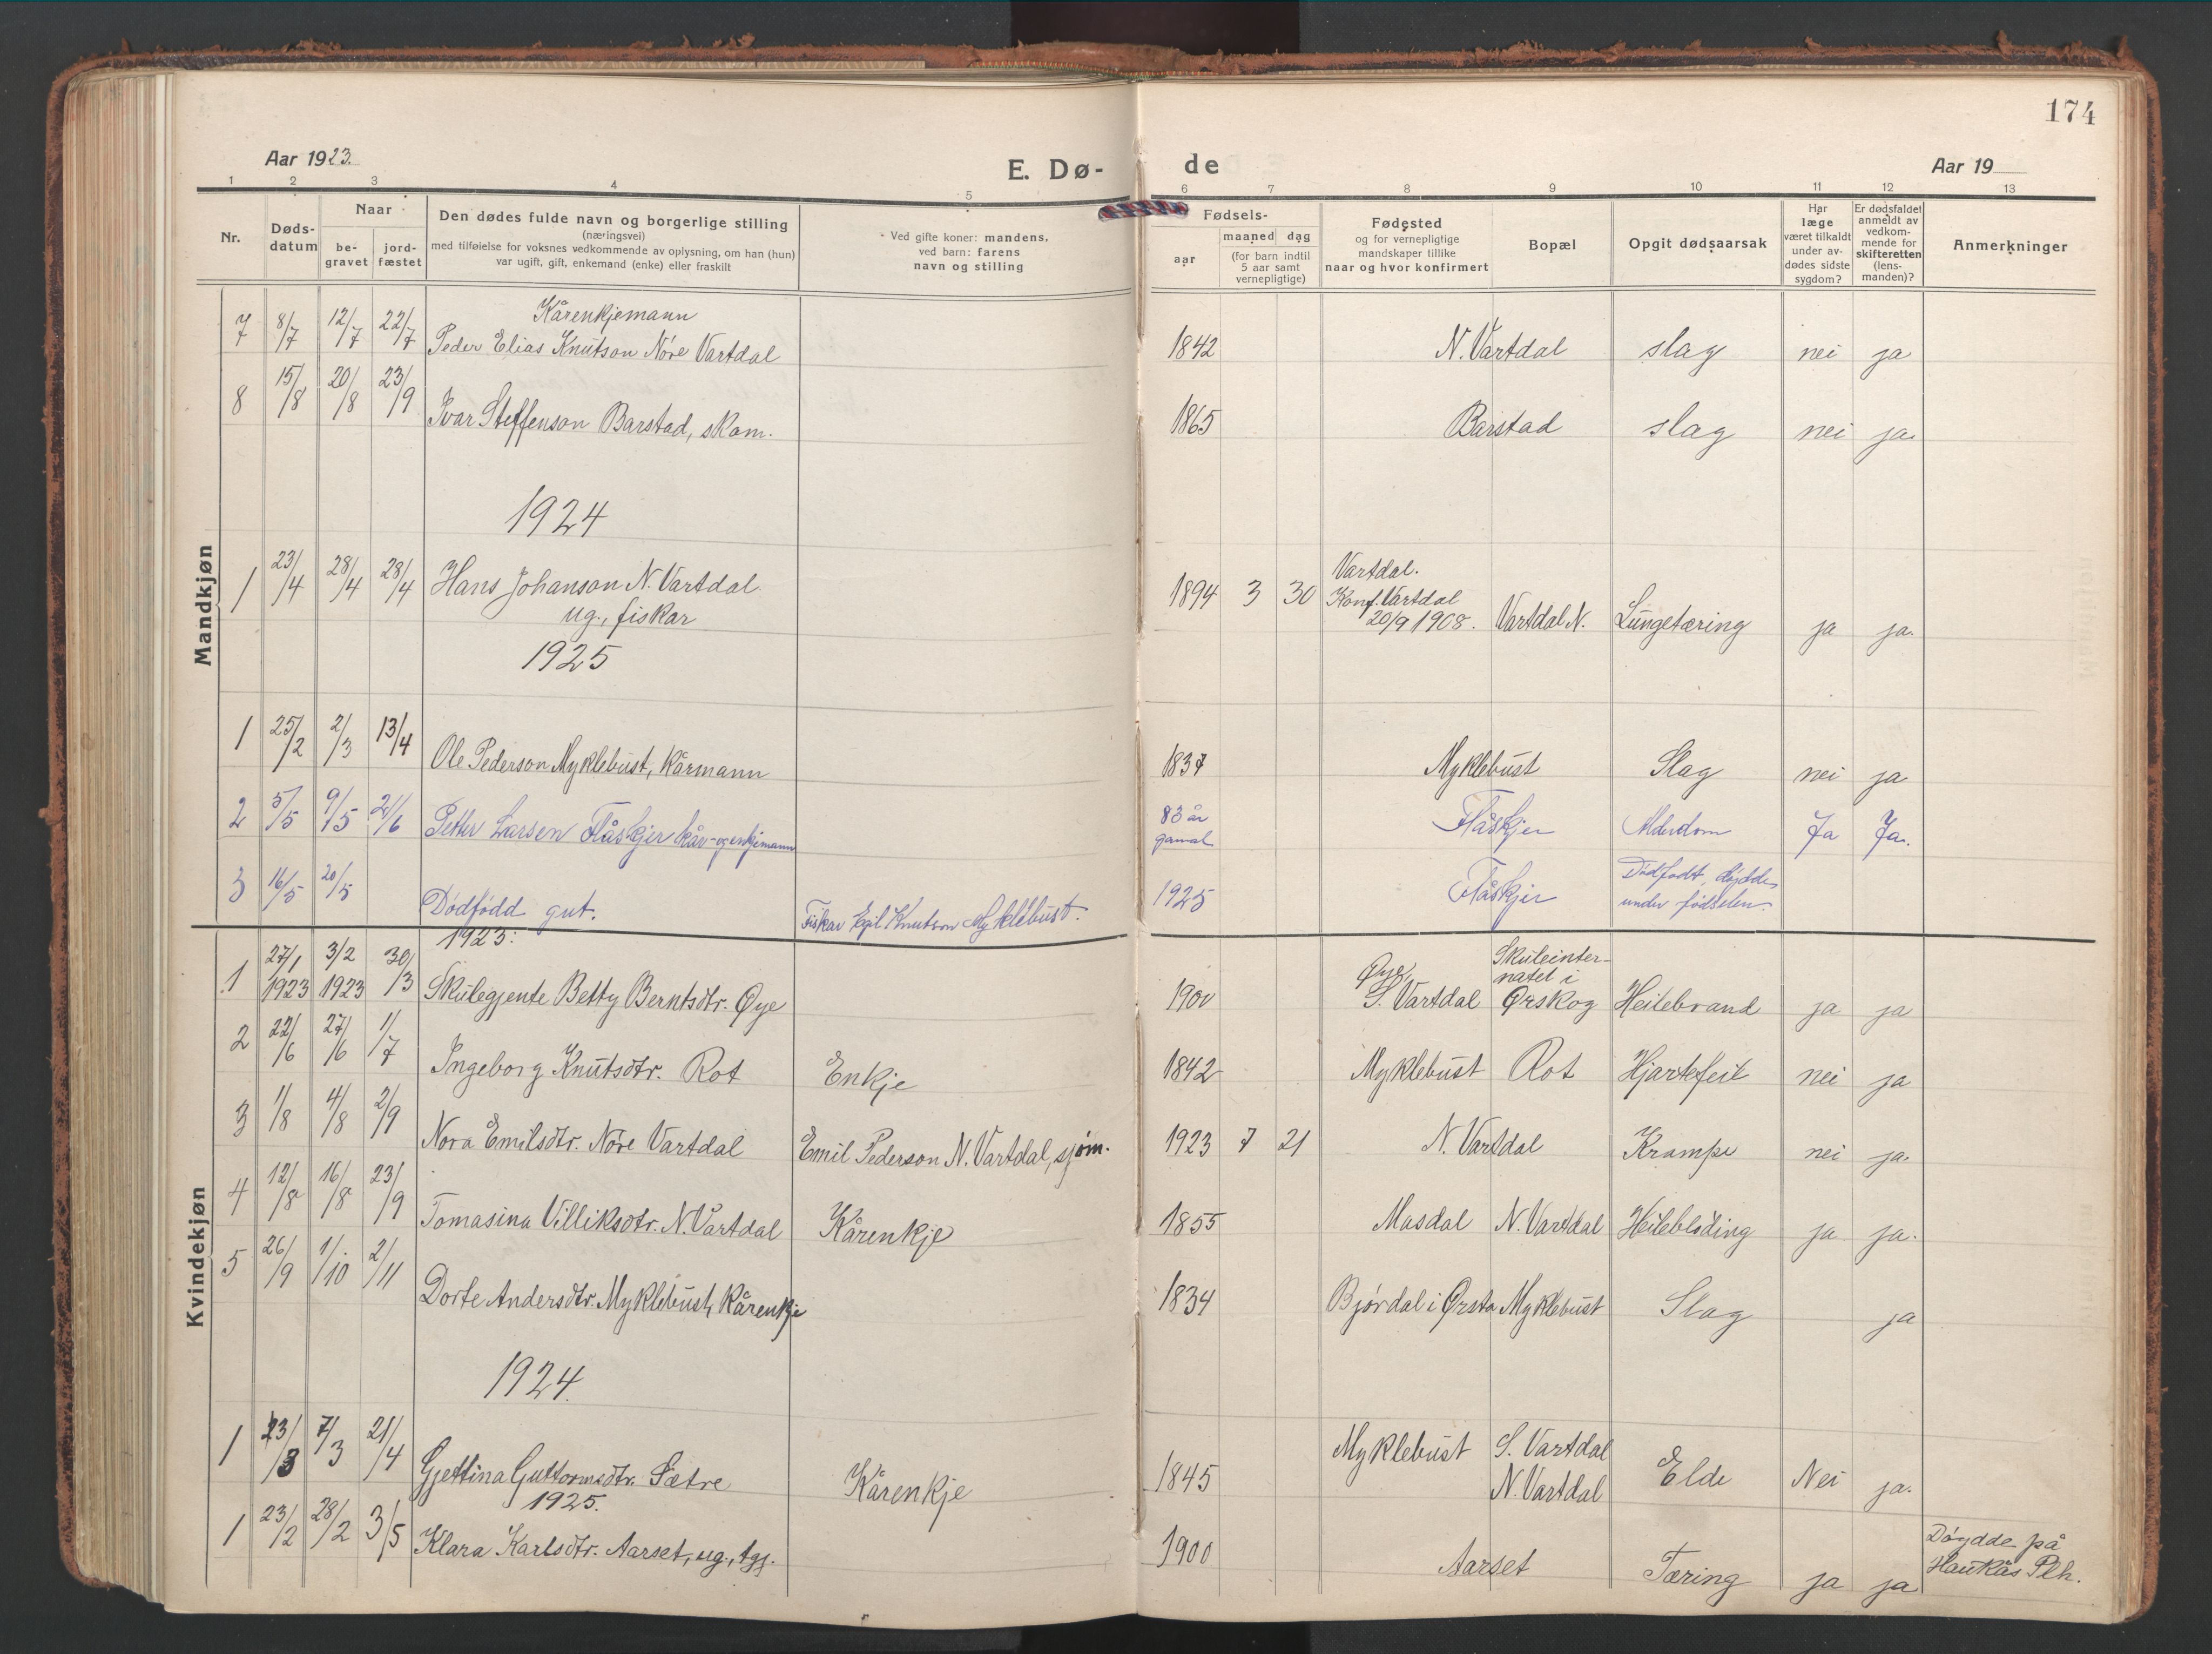 174
Aar 1923.
E. Dø-
de
Aar 19
1 2 3 4 5 6 7 8 9 10 11 12 13
Nr.
Døds-
datum
Naar
be-
gravet
jord-
fæstet
Den dødes fulde navn og borgerlige stilling
(næringsvei)
med tilføielse for voksnes vedkommende av oplysning, om han (hun)
var ugift, gift, enkemand (enke) eller fraskilt
Ved gifte koner: mandens,
ved barn: farens
navn og stilling
Fødsels-
aar
maaned dag
(for barn indtil
5 aar samt
vernepligtige)
Fødested
og for vernepligtige
mandskaper tillike
naar og hvor konfirmert
Bopæl
Opgit dødsaarsak
Har
læge
været tilkaldt
under av-
dødes sidste
sygdom?
Er dødsfaldet
anmeldt av
vedkom-
mende for
skifteretten
(lens-
manden)?
Anmerkninger
Mandkjøn
Kårenkjemann
7 8/7 12/7 22/7 Peder Elias Knutson Nöre Vartdal 1842 N. Vartdal slag nei ja
8 15/8 20/8 23/9 Ivar Steffenson Barstad, skom. 1865 Barstad slag nei ja.
1924
Vartdal.
1 23/4 28/4 28/4 Hans Johanson N. Vartdal 1894 3 30 Konf. Vartdal
ug., fiskar 20/9 1908. Vartdal N. Lungetæring ja ja.
1925
1 25/2 2/3 13/4 Ole Pederson Myklebust, kårmann 1837 Myklebust Slag nei ja
2 5/5 9/5 21/6 Petter Larsen Flåskjer kår- og enkjemann 83 år
gamal Flåskjer Alderdom Ja Ja.
3 16/5 20/5 Dødfødd gut. Fiskar Egil Knutson Myklebust. 1925 Flåskjer Dødfødt, døydde
under fødselen
Kvindekjøn
1923:
1 27/1 1923 3/2 1923 30/3 Skulegjente Betty Berntsdtr. Øye 1900 Øye,
S. Vartdal Skuleinter-
natet i
Ørskog Heilebrand ja ja
2 22/6 27/6 1/7 Ingeborg Knutsdtr. Rot Enkje 1842 Myklebust Rot Hjartefeil nei ja
3 1/8 4/8 2/9 Nora Emilsdtr. Nöre Vartdal Emil Pederson N. Vartdal, sjøm. 1923 7 21 N. Vartdal Krampe nei ja.
4 12/8 16/8 23/9 Tomasina Villiksdtr. N. Vartdal Kårenkje 1855 Masdal N. Vartdal Heilebløding ja ja.
5 26/9 1/10 2/11 Dorte Andersdtr. Myklebust, Kårenkje 1834 Bjørdal i Ørsta Myklebust Slag ja
1924.
1 23/3 7/3 21/4 Gjettina Guttormsdtr. Sætre Kårenkje 1845 Myklebust S. Vartdal
N. Vartdal Elde Nei ja.
1925.
1 23/2 28/2 3/5 Klara Karlsdtr. Aarset, ug., tgj. 1900 Aarset Tæring ja ja Døydde på
Haukås Plh.